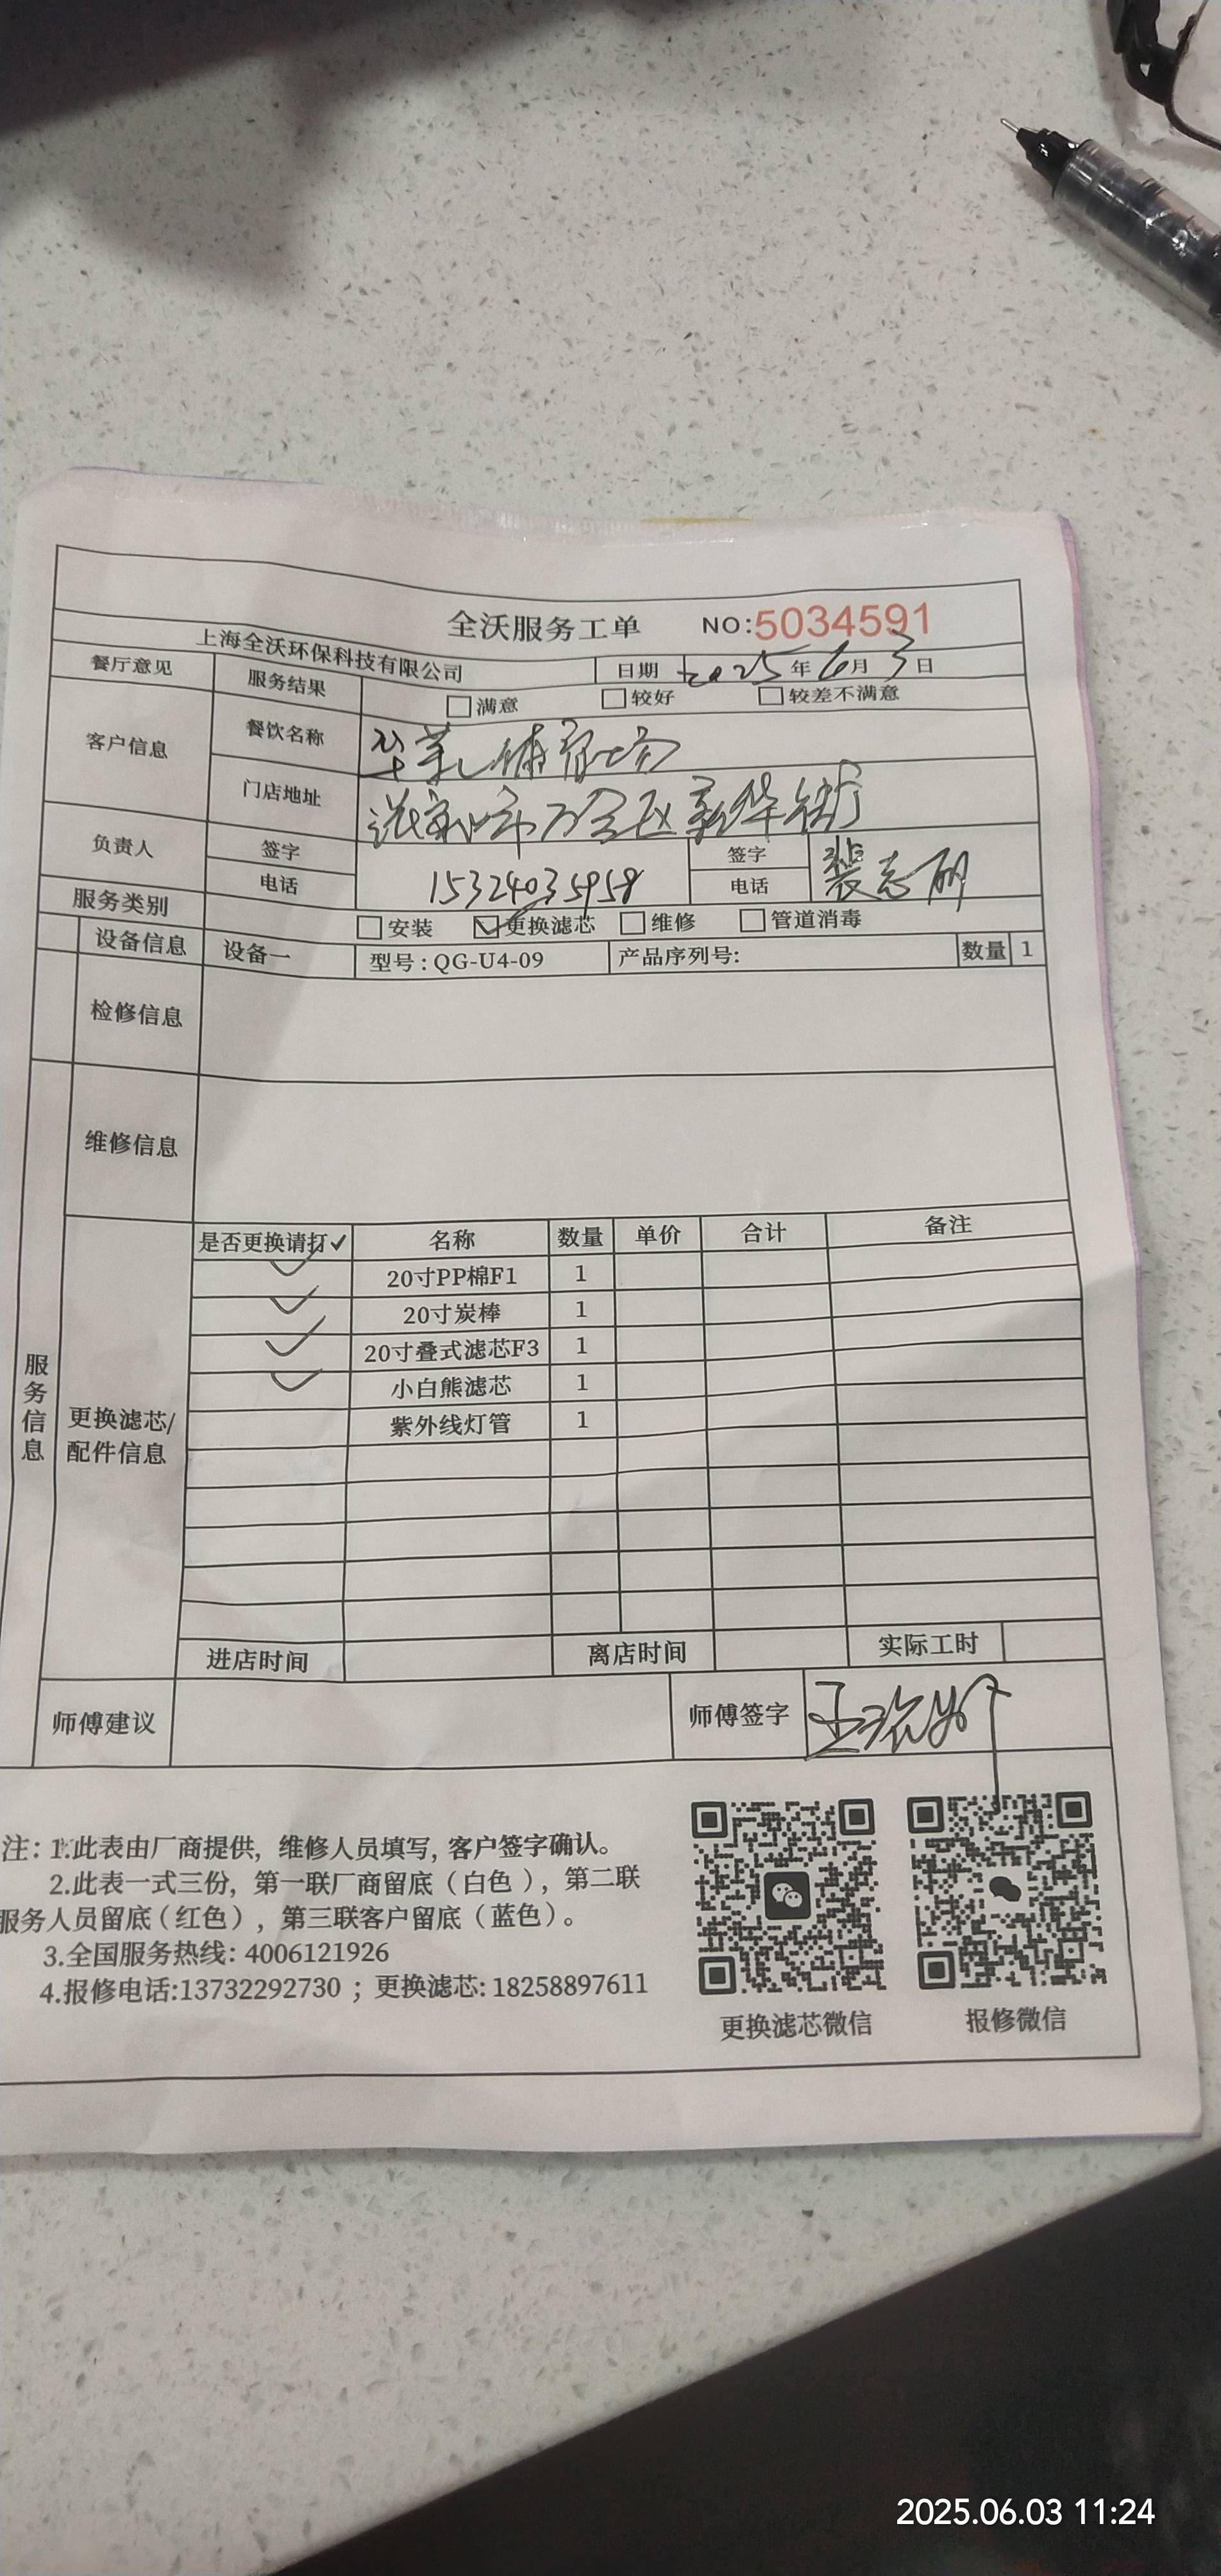 全沃服务工单 NO:5034591
上海全沃环保科技有限公司 日期 2025年6月3日
餐厅意见 服务结果 满意 较好 较差不满意
客户信息 餐饮名称
门店地址 张家口市万全区新华街
负责人 签字 签字
电话 15324035958 电话 裴志丽
服务类别 安装 更换滤芯 维修 管道消毒
设备信息 设备一 型号:QG-U4-09 产品序列号: 数量 1
检修信息
维修信息
服务信息
更换滤芯/
配件信息
是否更换请打✓ 名称 数量 单价 合计 备注
✓ 20寸PP棉F1 1
✓ 20寸炭棒 1
✓ 20寸叠式滤芯F3 1
✓ 小白熊滤芯 1
紫外线灯管 1
进店时间 离店时间 实际工时
师傅建议 师傅签字
注: 1.此表由厂商提供, 维修人员填写, 客户签字确认。
2.此表一式三份, 第一联厂商留底(白色), 第二联
服务人员留底(红色), 第三联客户留底(蓝色)。
3.全国服务热线: 4006121926
4.报修电话:13732292730 ; 更换滤芯: 18258897611
更换滤芯微信 报修微信
2025.06.03 11:24